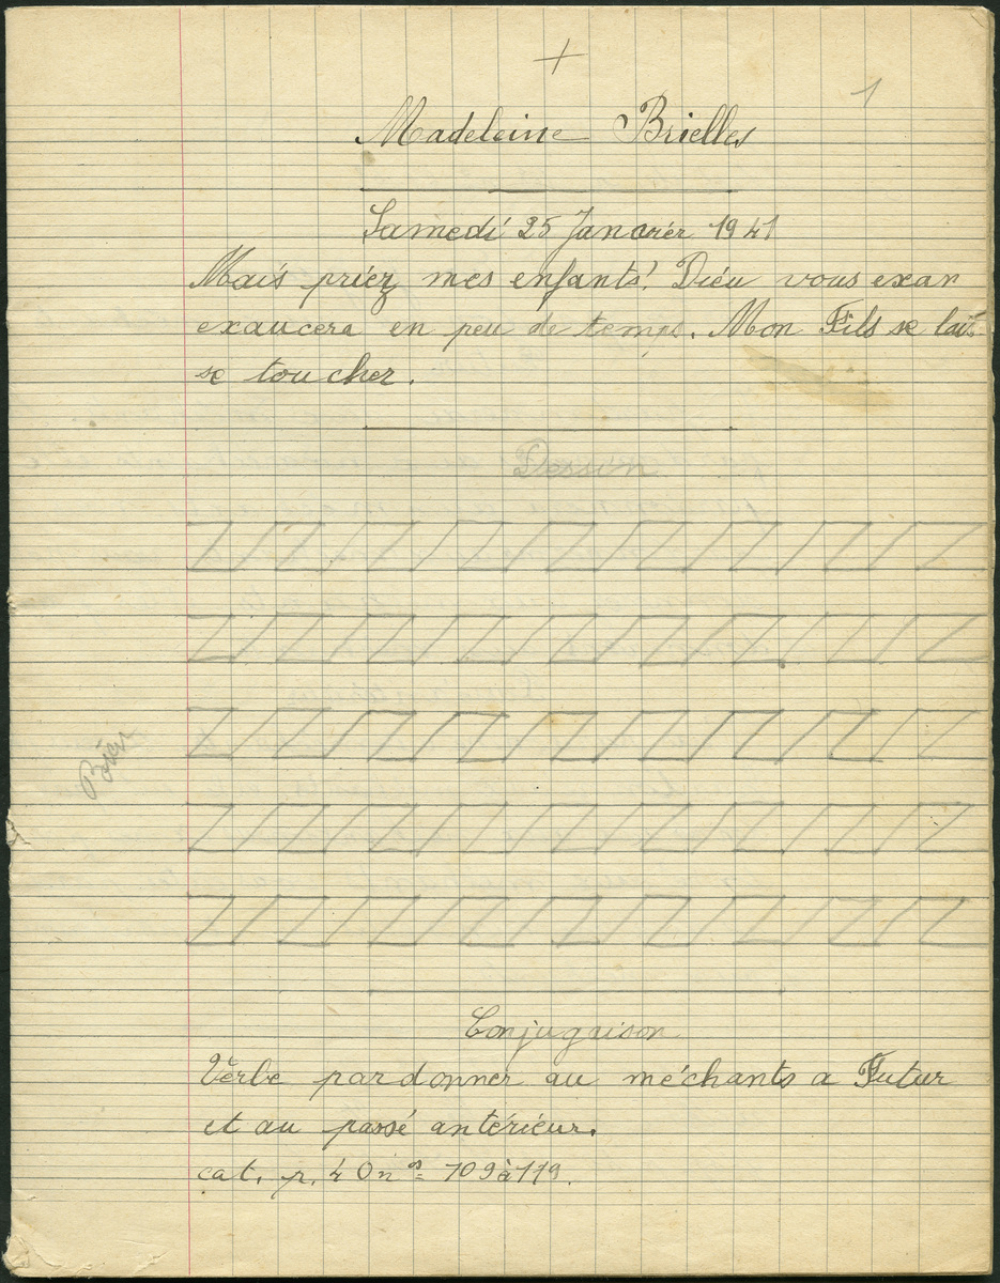 +
1
Madeleine Brielles
Samedi 25 Janvier 1941
Mais priez mes enfants! Dieu vous exan
exaucera en peu de temps. Mon Fils se lais
se toucher.
Dessin
Bien
Conjuguison
Verbe pardonner au méchants a Futur
et au passé antérieur.
cat. p. 40 nos 109 à 119.